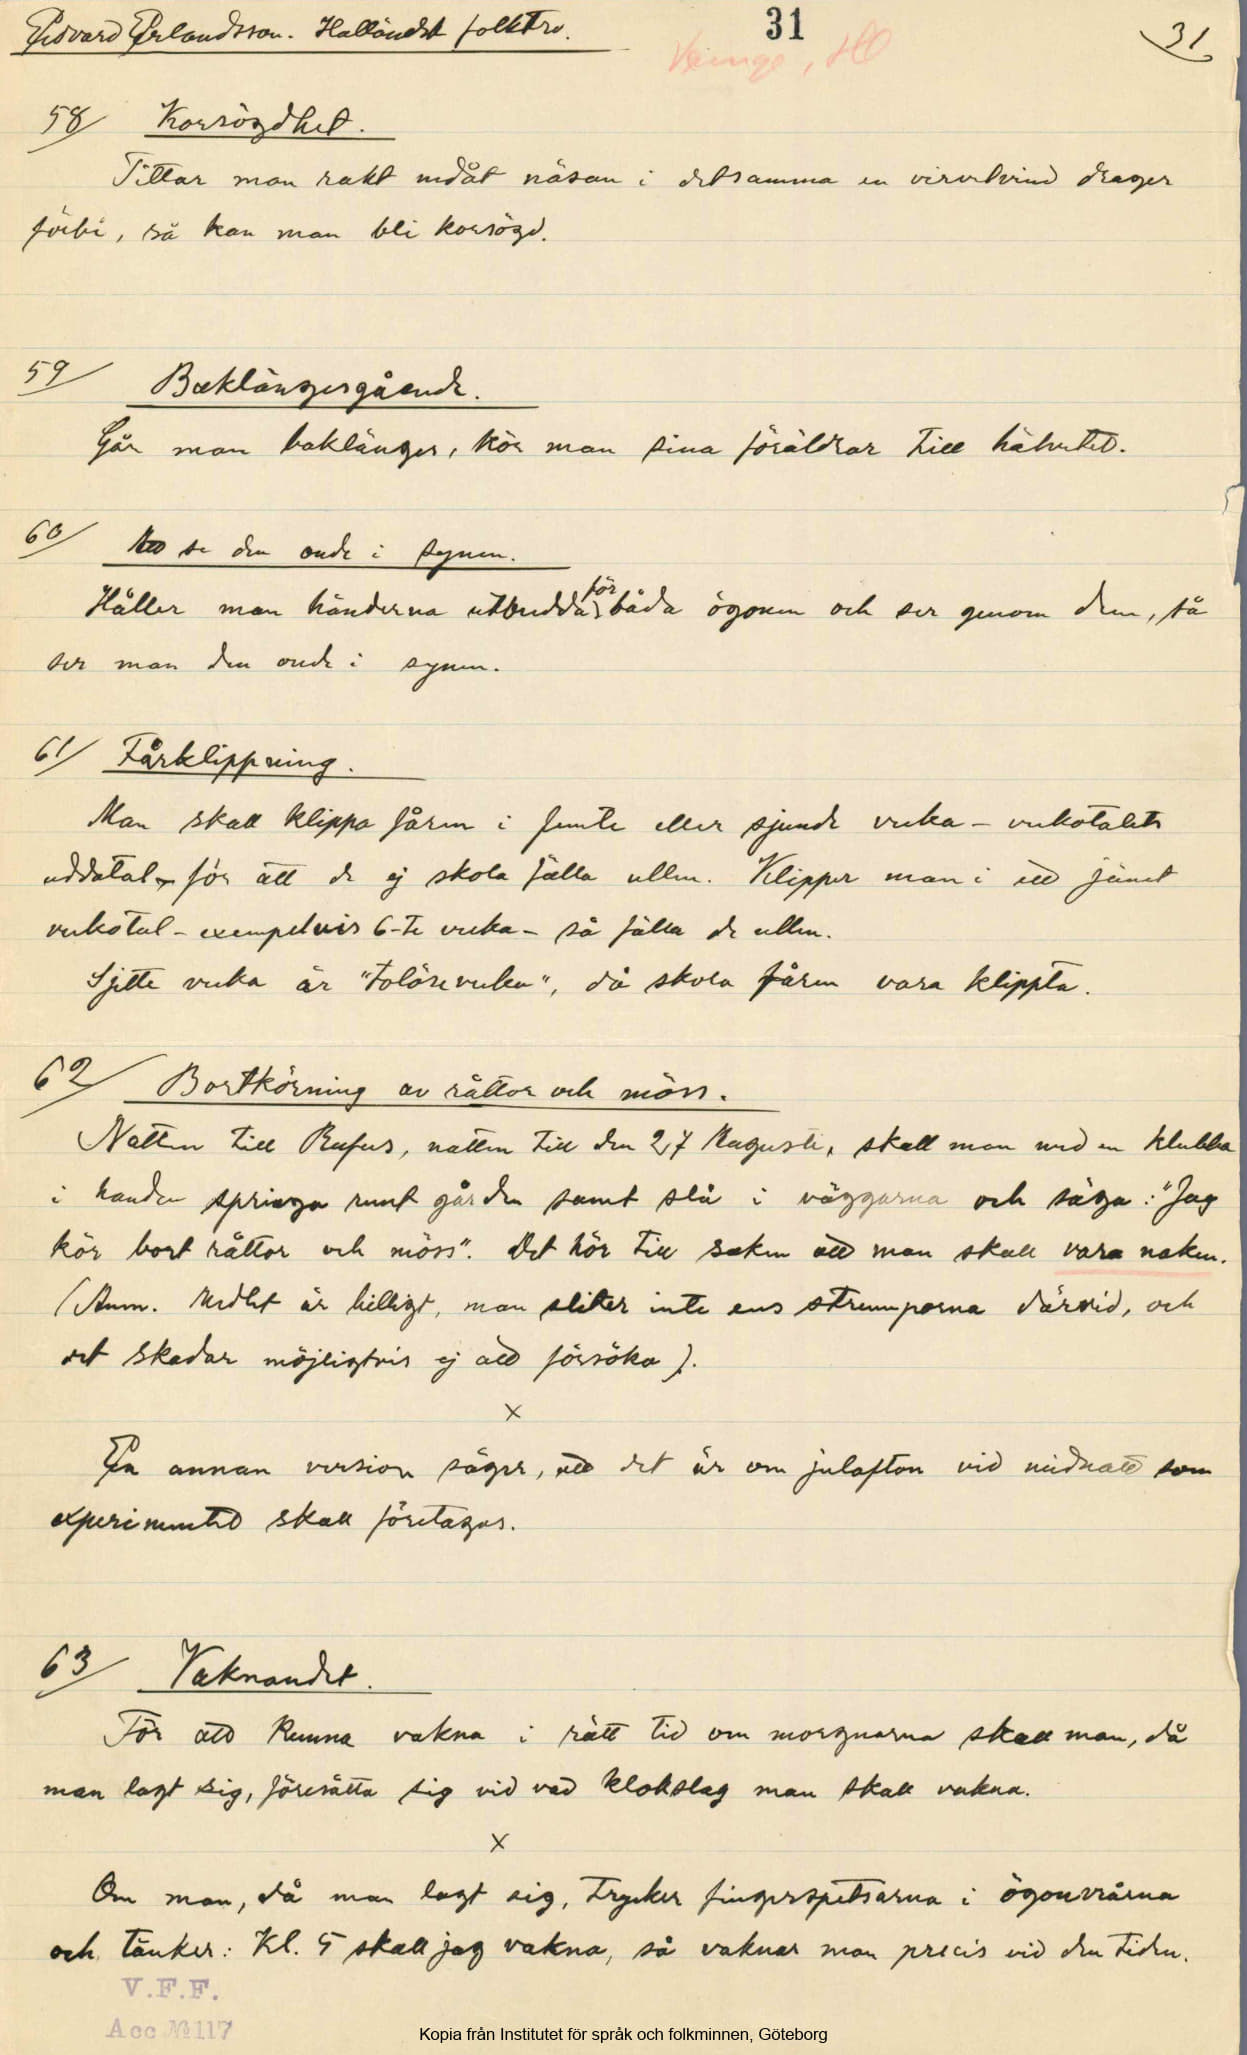 Edvard Erlandsson. Halländsk folktro.
31
31
Veinge, Hl
58/ Korsögdhet.
Tittar man rakt nedåt näsan i detsamma en virvelvind drager
förbi, så kan man bli korsögd.
59/ Baklängesgående.
Går man baklänges, kör man sina föräldrar till hälvetet.
60/ Att se den onde i synen.
Håller man händerna utbredda för båda ögonen och ser genom dem, så
ser man den onde i synen.
61/ Fårklippning.
Man skall klippa fåren i femte eller sjunde veka - vekotalets
uddatal - för att de ej skola fälla ullen. Klipper man i ett jämt
vekotal - exempelvis 6-te veka - så fälla de ullen.
Sjette veka är "tolöseveka", då skola fåren vara klippta.
62/ Bortkörning av råttor och möss.
Natten till Rufus, natten till den 27 Augusti, skall man med en klubba
i handen springa runt gården samt slå i väggarna och säga: "Jag
kör bort råttor och möss". Det hör till saken att man skall vara naken.
(Anm. Medlet är billigt, man sliter inte ens strumporna därvid, och
det skadar möjligtvis ej att försöka).
x
En annan version säger, att det är om julafton vid midnatt som
experimentet skall företagas.
63/ Vaknandet.
För att kunna vakna i rätt tid om morgnarna skall man, då
man lagt sig, föresätta sig vid vad klokslag man skall vakna.
x
Om man, då man lagt sig, trycker fingerspetsarna i ögonvrårna
och tänker: Kl. 5 skall jag vakna, så vaknar man precis vid den tiden.
V.F.F.
Acc № 117
Kopia från Institutet för språk och folkminnen, Göteborg